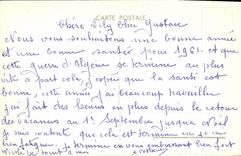 CARTE POSTALE
Chère Lily Cher Gustave
Nous vous souhaitons une bonne année
et une bonne santée pour 1961. et que
cette guerre d'Algérie se termine au plus
vite à part cela, j'espère que la santé est
bonne, cette année j'ai beaucoup travailler
j'ai fait des heures en plus depuis le retour
des vacances au 1er Septembre jusque Noël
je suis contente que cela est terminé car je suis
bien fatiguée, je termine en vous embrassant bien fort